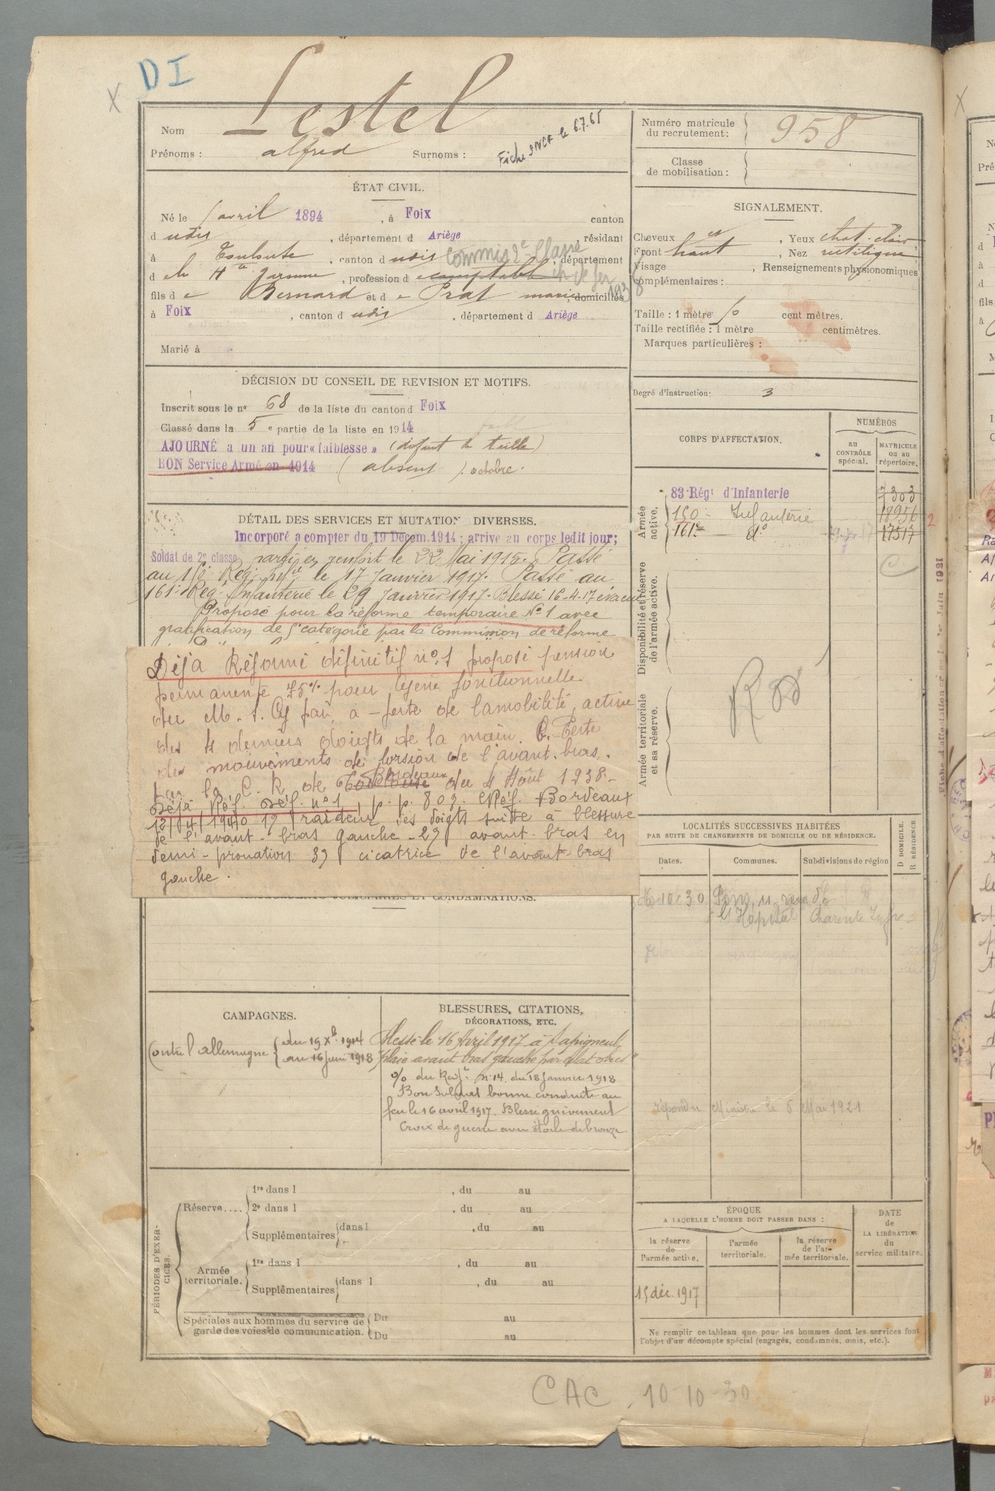 DI
Nom Lestel
Prénoms : alfred Surnoms :
Numéro matricule
du recrutement : 958
Classe
de mobilisation :
ÉTAT CIVIL.
Né le avril 1894, à Foix canton
d udis, département d Ariège, résidant
à Toulouse, canton d udis, département
d de Hte Garonne, profession de
fils de Bernard et de Prat domiciliés
à Foix, canton d udis, département d Ariège
Marié à
SIGNALEMENT.
Cheveux , Yeux chat. clair
Front haut, Nez rectiligne
Visage , Renseignements physionomiques
complémentaires :
Taille : 1 mètre centimètres.
Taille rectifiée : 1 mètre centimètres.
Marques particulières :
Degré d'instruction : 3
DÉCISION DU CONSEIL DE REVISION ET MOTIFS.
Inscrit sous le n° 68 de la liste du canton d Foix
Classé dans la 5e partie de la liste en 1914
AJOURNÉ a un an pour « faiblesse » (défaut de taille)
BON Service Armé en 1914 (absent octobre.
CORPS D'AFFECTATION.
NUMÉROS
AU CONTRÔLE spécial.
MATRICULE OU AU répertoire.
Armée active.
83 Régt d'Infanterie 7303
150 - Infanterie 18956
161e - do 17517
Disponibilité et réserve de l'armée active.
Armée territoriale et sa réserve.
DÉTAIL DES SERVICES ET MUTATIONS DIVERSES.
Incorporé a compter du 19 Décem. 1914 ; arrive au corps ledit jour ;
Soldat de 2e classe, parti en renfort le 22 Mai 1915. Passé
au Rég. Infie le 17 Janvier 1917. Passé au
161e Rég. Infanterie le 29 Janvier 1917. Blessé 16-4-17 évacué
Proposé pour la réforme temporaire N°1 avec
gratification de 5e catégorie par la Commission de réforme
Déjà Réformé définitif n°1 proposé pension
permanente 45% pour gêne fonctionnelle
du M. S. G par, a - perte de la mobilité active
des 4 derniers doigts de la main. Perte
des mouvements de torsion de l'avant-bras.
par la C. R de Toulouse Bordeaux du 4 Août 1938.
Déjà Réf. Déf. n°1, p. p. Réf. Bordeaux
12/04/1940 1°) raideur des doigts suite à blessure
de l'avant-bras gauche - 2°) avant-bras en
demi-pronation 3°) cicatrice de l'avant-bras
gauche.
CONDAMNATIONS.
LOCALITÉS SUCCESSIVES HABITÉES
PAR SUITE DE CHANGEMENTS DE DOMICILE OU DE RÉSIDENCE.
Dates. Communes. Subdivisions de région
D DOMICILE. R RÉSIDENCE
l'Hôpital Charente Infre
répondu Ministre le 6 Mai 1921
CAMPAGNES.
Contre l'allemagne du 19 Xbre 1914
au 16 Juin 1918
BLESSURES, CITATIONS,
DÉCORATIONS, ETC.
Blessé le 16 Avril 1917 à Sapigneul
plaie avant bras gauche par éclat obus
O/o du Régt n°14 du 18 Janvier 1918
Bon Soldat bonne conduite au
feu le 16 avril 1917. Blessé grièvement
Croix de guerre avec étoile de bronze
PÉRIODES D'EXERCICES.
Réserve....
1re dans l , du au
2e dans l , du au
Supplémentaires dans l , du au
Armée territoriale.
1re dans l , du au
Supplémentaires dans l , du au
Spéciales aux hommes du service de
garde des voies de communication.
Du au
Du au
ÉPOQUE
A LAQUELLE L'HOMME DOIT PASSER DANS :
la réserve de l'armée active.
l'armée territoriale.
la réserve de l'armée territoriale.
DATE de LA LIBÉRATION du service militaire.
15 déc. 1917
Ne remplir ce tableau que pour les hommes dont les services font
l'objet d'un décompte spécial (engagés, condamnés, omis, etc.).
CAC. 10-10-30